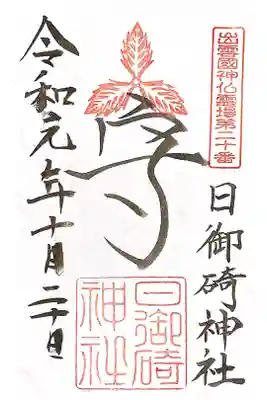 出雲國神仏霊場第二十番
日御碕神社
日御碕神社
令和元年十月二十日